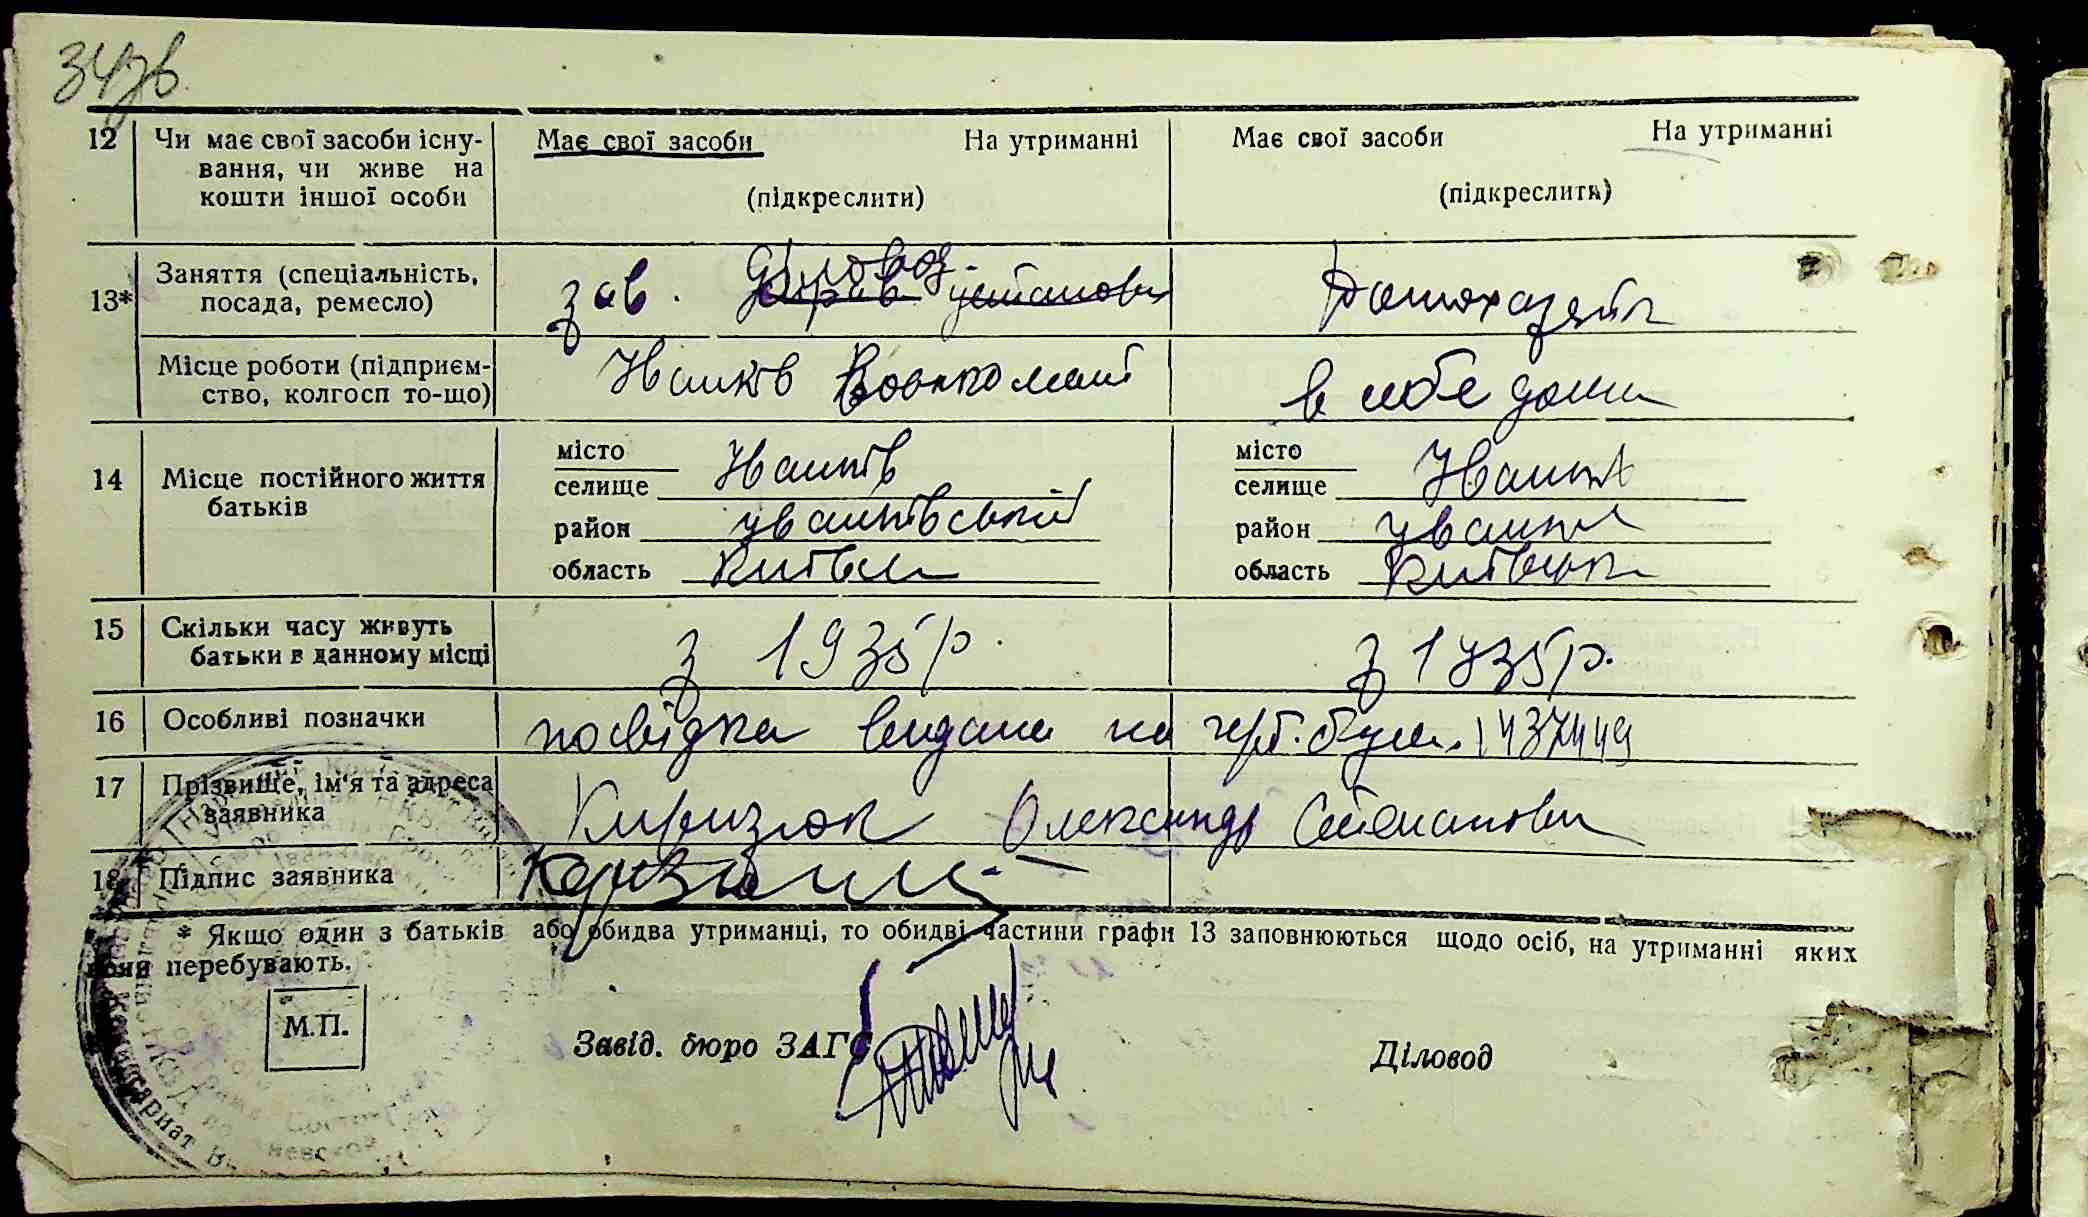 347в
12 Чи має свої засоби існу- Має свої засоби На утриманні Має свої засоби На утриманні
вання, чи живе на
кошти іншої особи (підкреслити) (підкреслити)
13* Заняття (спеціальність, зав. діловод. установи Домохазяйка
посада, ремесло)
Місце роботи (підприєм- Іванків Воєнкомат в себе дома
ство, колгосп то-що)
14 Місце постійного життя місто Іванків місто Іванків
батьків селище селище
район іванківський район
область Київськ область Київська
15 Скільки часу живуть з 1935 р. з 1935 р.
батьки в данному місці
16 Особливі позначки посвідка видана на герб. бум. 1437449
17 Прізвище, ім'я та адреса Киризюк Олександр Степанович
заявника
18 Підпис заявника
* Якщо один з батьків або обидва утриманці, то обидві частини графи 13 заповнюються щодо осіб, на утриманні яких
вони перебувають.
М.П.
Завід. бюро ЗАГС Діловод